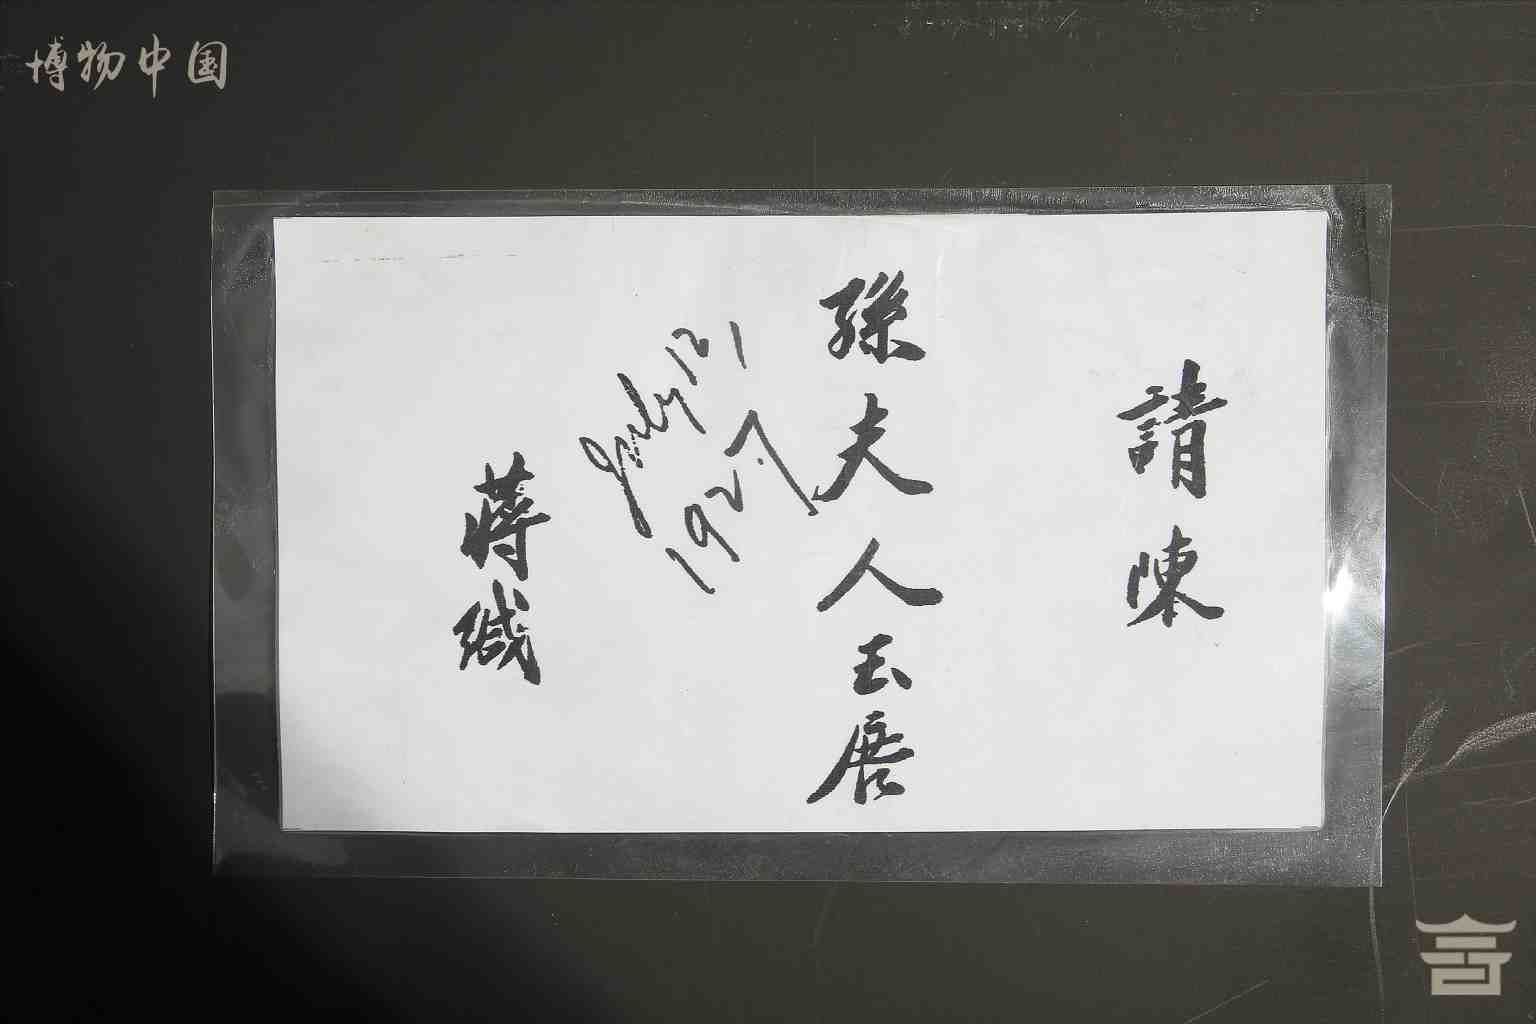 博物中国
請陳
孫夫人玉展
July 12,
1927
蔣緘